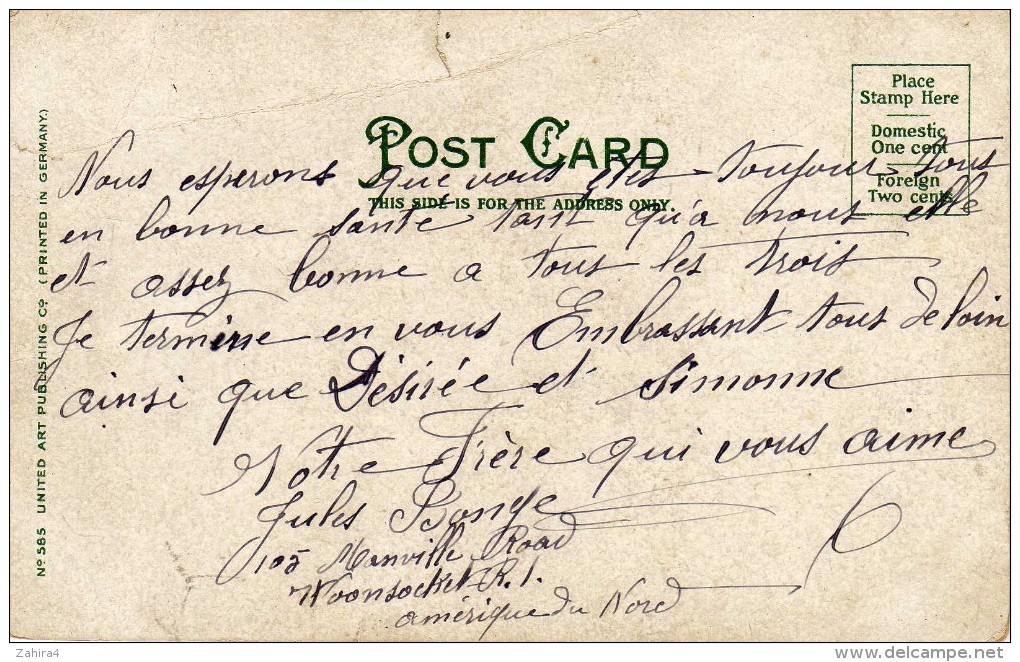 Nº 585 UNITED ART PUBLISHING Cº. (PRINTED IN GERMANY.)
POST CARD
THIS SIDE IS FOR THE ADDRESS ONLY.
Place
Stamp Here
Domestic
One cent
Foreign
Two cents
Nous esperons que vous êtes toujour tous
en bonne santé tant qu'a nous elle
et assez bonne a tous les trois
Je termine en vous Embrassant tous de loin
ainsi que Désirée et Simonne
Notre Frère qui vous aime
Jules Bonge
105 Manville Road
Woonsocket R.I.
amérique du Nord
6
Zahira4
www.delcampe.net